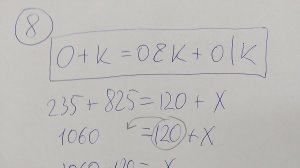 8
O+K = OZK + O|K
235 + 825 = 120 + X
1060 = 120 + X